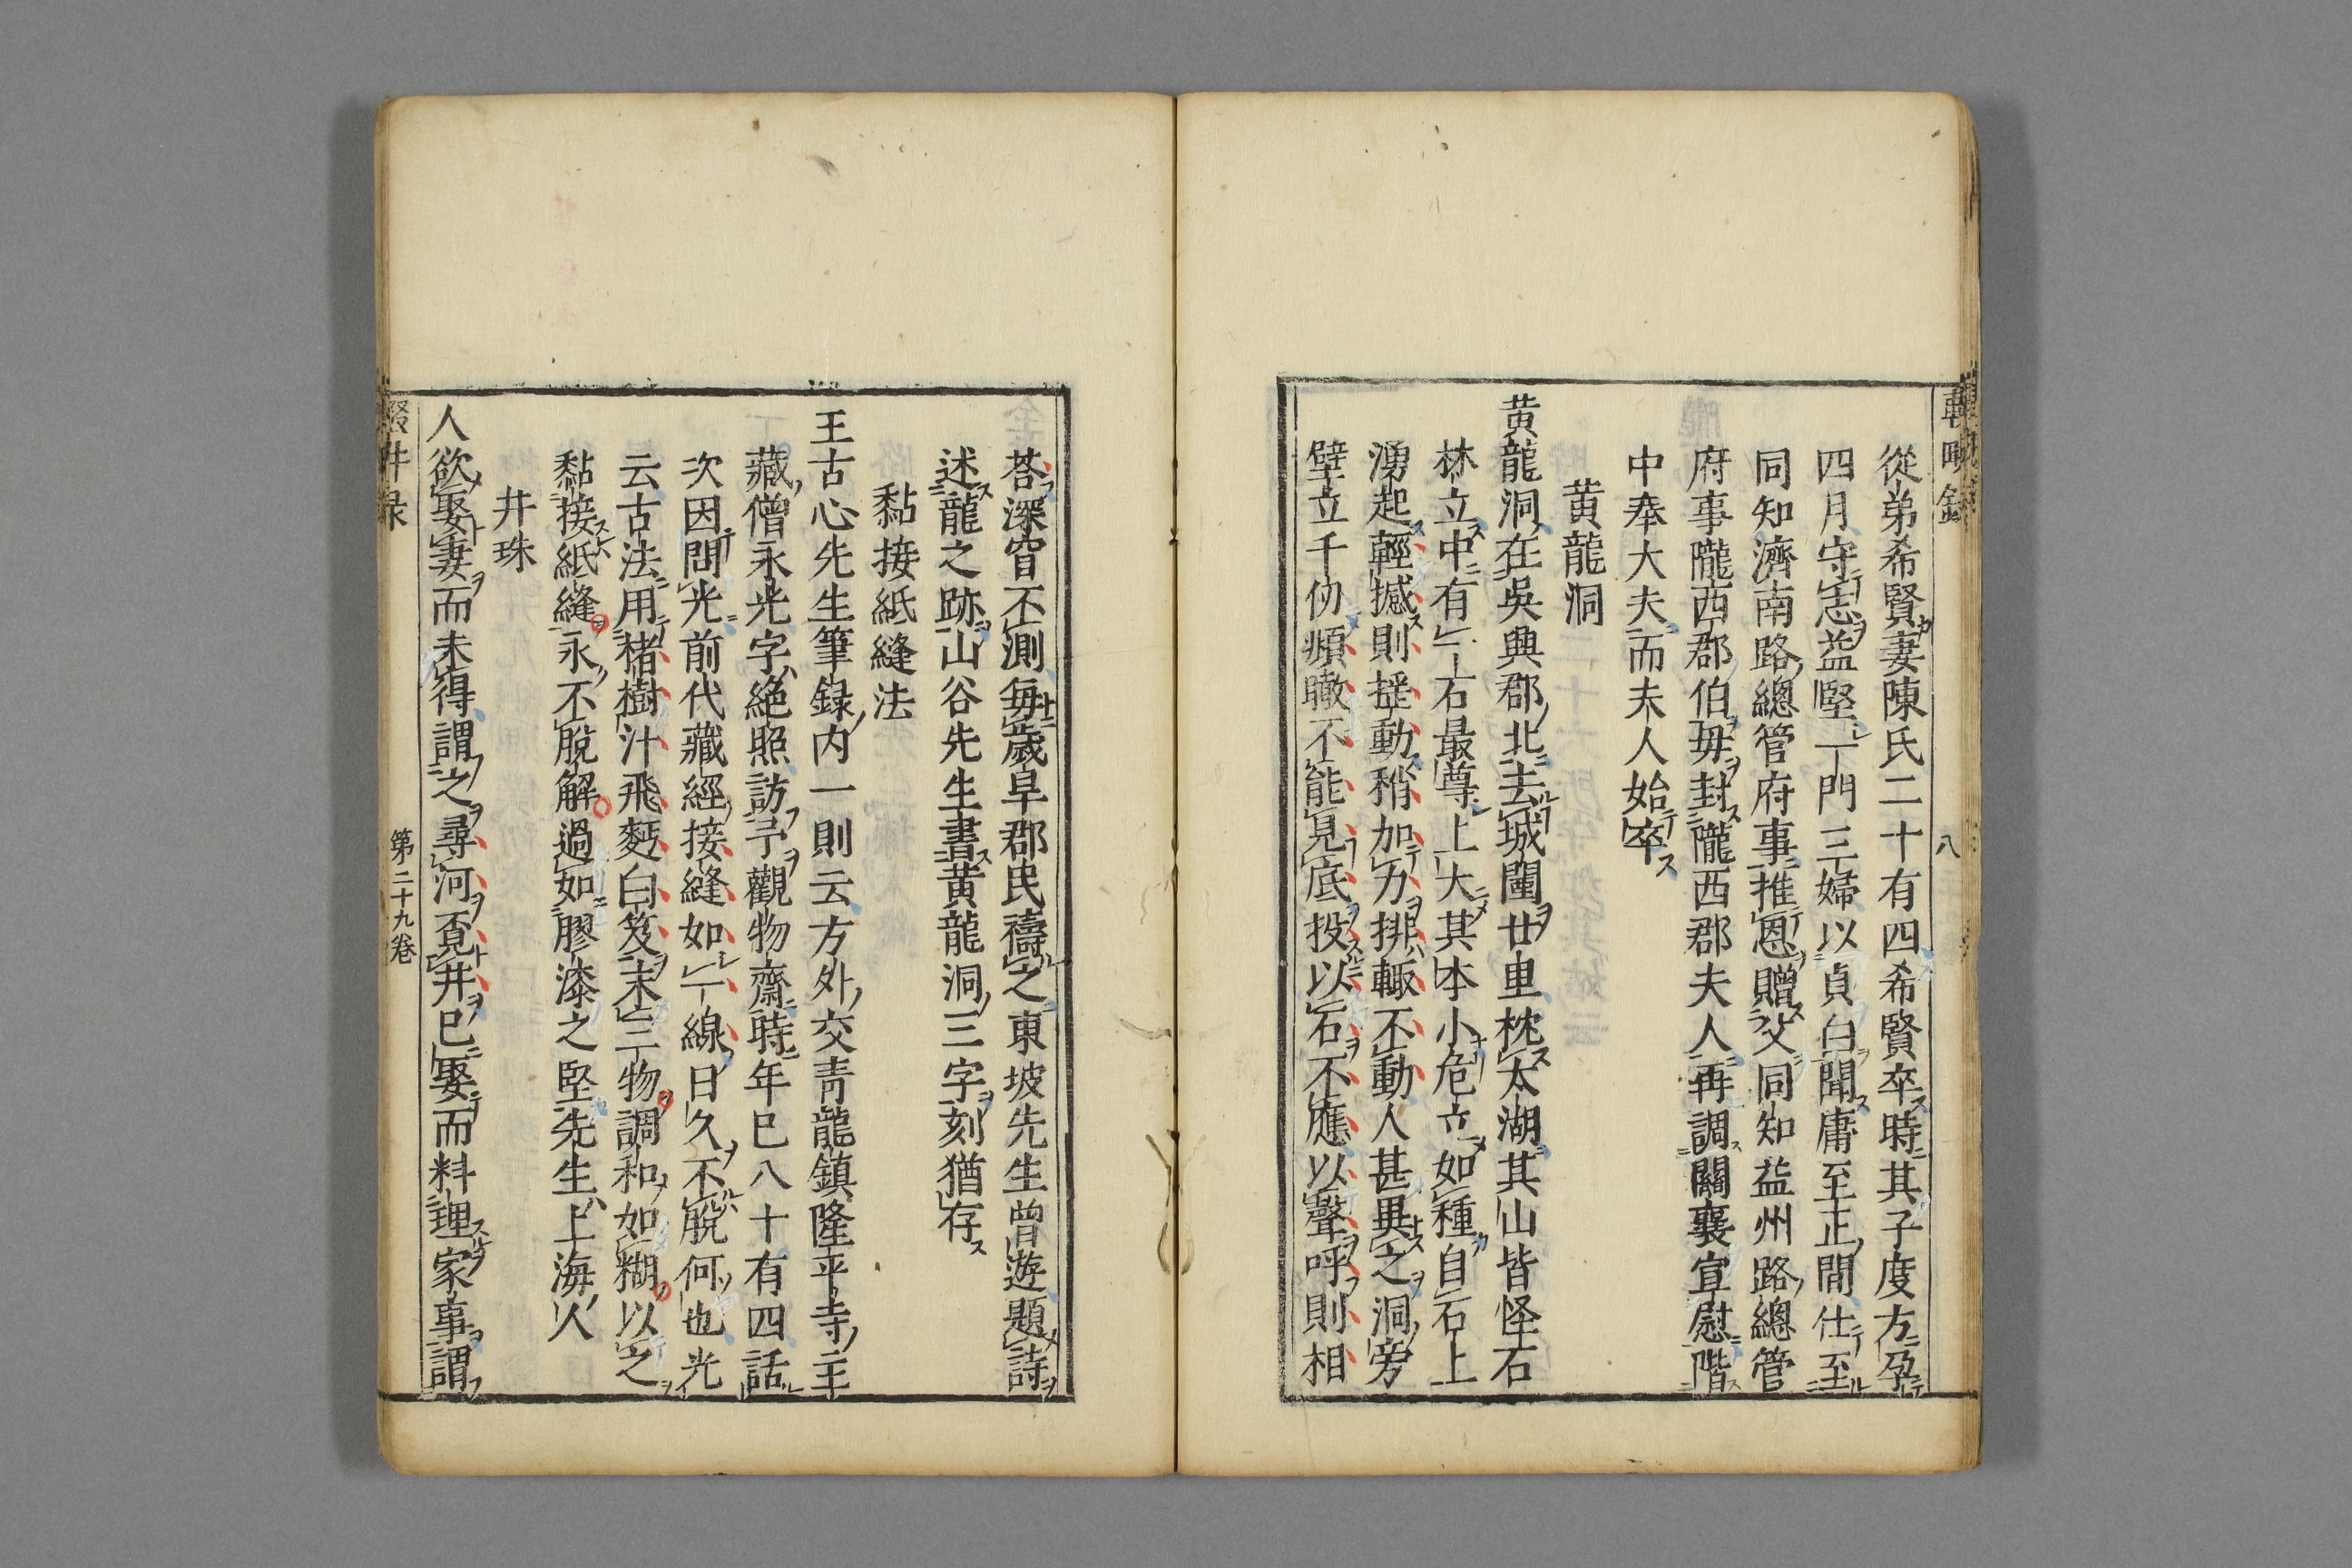 從弟希賢妻陳氏二十有四希賢卒時其子度方孕
四月守志益堅一門三婦以貞白聞庸至正間仕至
同知濟南路總管府事推恩贈父同知益州路總管
府事隴西郡伯母封隴西郡夫人再調關襄宣慰階
中奉大夫而夫人始卒
黃龍洞
黃龍洞在吳興郡北去城闉廿里枕太湖其山皆怪石
林立中有一石最尊上大其本小危立如種自石上
湧起輕撼則揺動稍加力排輙不動人甚異之洞旁
壁立千仞頫瞰不能見底投以石不應以聲呼則相
荅深窅不測每歲旱郡民禱之東坡先生曾遊題詩
述龍之跡山谷先生書黃龍洞三字刻猶存
黏接紙縫法
王古心先生筆録内一則云方外交青龍鎮隆平寺主
藏僧永光字絶照訪予觀物齋時年已八十有四話
次因問光前代藏經接縫如一線日久不脫何也光
云古法用楮樹汁飛麪白笈末三物調和如糊以之
黏接紙縫永不脫解過如膠漆之堅先生上海人
井珠
人欲娶妻而未得謂之尋河覓井已娶而料理家事謂
輟畊録
八
第二十九卷